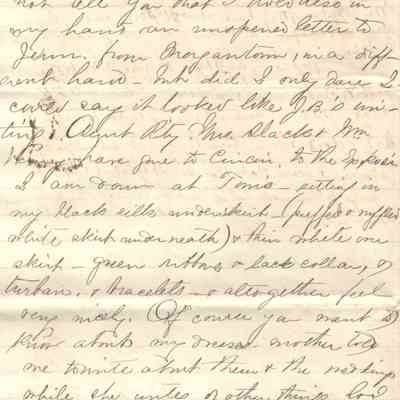 not tell you that I held also in
my hand an unopened letter to
Jerm. from Morgantown, in a diff-
erent hand - but did I only dare I
could say it looked like J.B.'s wri-
ting. Aunt Mrs Black & Mr
have gone to Cincin. to the
I am down at Tom's - sitting in
my black silk underskirt - (puffed & ruffled
white skirt underneath) & thin white over
skirt - green ribbons & lace collar, &
turban, & bracelets - & altogether feel
very nicely. Of course you want to
know about my dress - mother told
me to write about them & the wedding
while she writes of other things